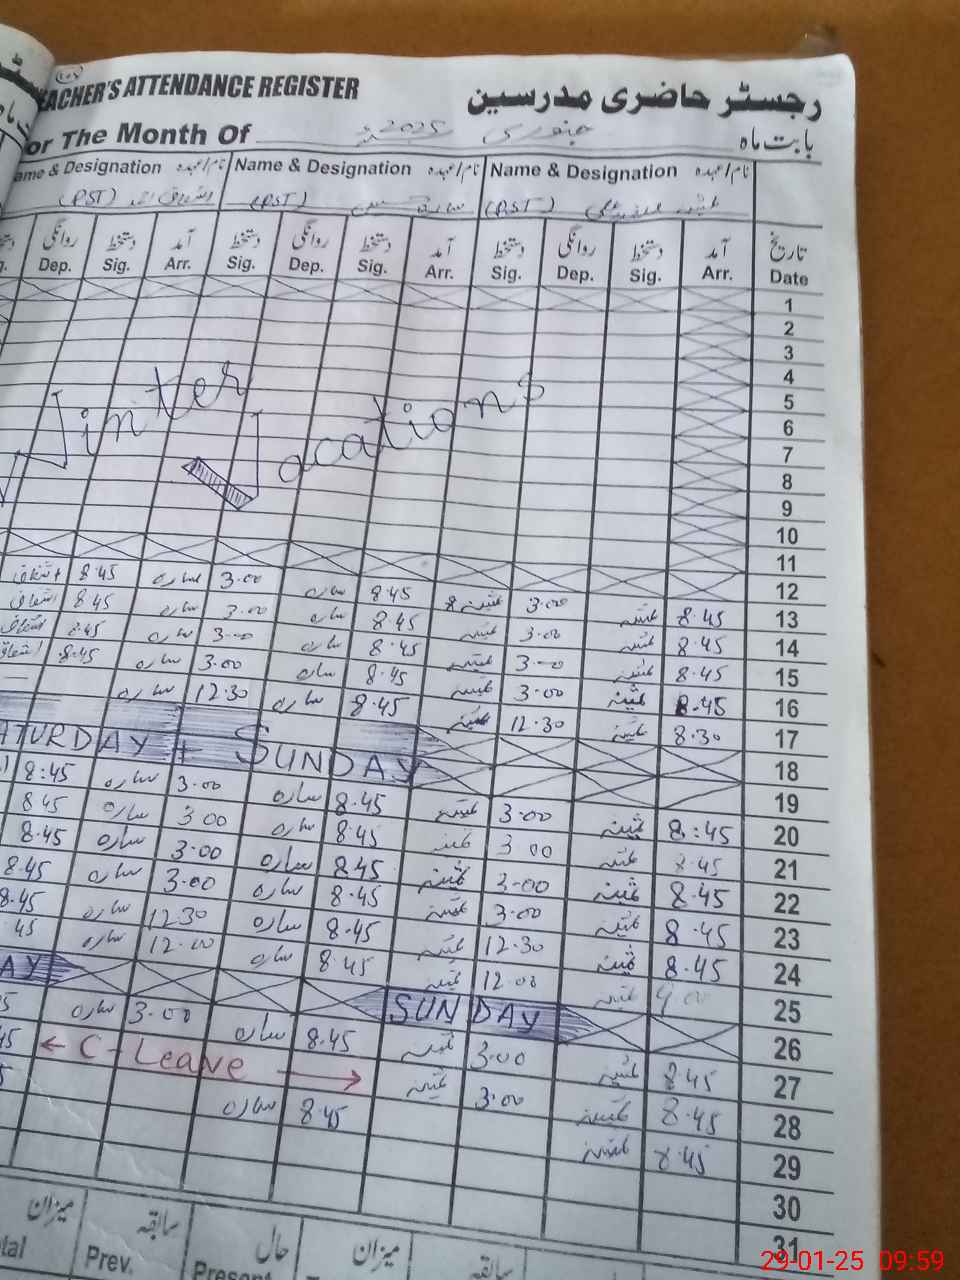 TEACHER'S ATTENDANCE REGISTER رجسٹر حاضری مدرسین
For The Month Of جنوری 2025 بابت ماہ
Name & Designation نام/عہدہ Name & Designation نام/عہدہ Name & Designation نام/عہدہ
(PST) (PST) (PST)
روانگی دستخط آمد دستخط روانگی دستخط آمد دستخط روانگی دستخط آمد تاریخ
Dep. Sig. Arr. Sig. Dep. Sig. Arr. Sig. Dep. Sig. Arr. Date
1
2
3
4
Winter
5
Vacations
6
7
8
9
10
11
12
8.45 سارہ 3.00 سارہ 8.45 3.00 8.45 13
8.45 سارہ 3.00 سارہ 8.45 3.00 8.45 14
8.45 سارہ 3.00 سارہ 8.45 3.00 8.45 15
8.45 سارہ 3.00 سارہ 8.45 3.00 8.45 16
سارہ 12.30 سارہ 8.45 12.30 8.30 17
SATURDAY + SUNDAY 18
19
8:45 سارہ 3.00 سارہ 8.45 ثمینہ 3.00 ثمینہ 8:45 20
8.45 سارہ 3.00 سارہ 8.45 ثمینہ 3.00 ثمینہ 8.45 21
8.45 سارہ 3.00 سارہ 8.45 ثمینہ 3.00 ثمینہ 8.45 22
8.45 سارہ 3.00 سارہ 8.45 ثمینہ 3.00 ثمینہ 8.45 23
8.45 سارہ 12.30 سارہ 8.45 ثمینہ 12.30 ثمینہ 8.45 24
45 سارہ 12.00 سارہ 8.45 ثمینہ 12.00 ثمینہ 9.00 25
SUNDAY 26
سارہ 3.00 سارہ 8.45 ثمینہ 3.00 ثمینہ 8.45 27
← C-Leave → ثمینہ 3.00 ثمینہ 8.45 28
سارہ 8.45 ثمینہ 8.45 29
30
31
میزان سابقہ حال میزان سابقہ
Prev. Present
29-01-25 09:59